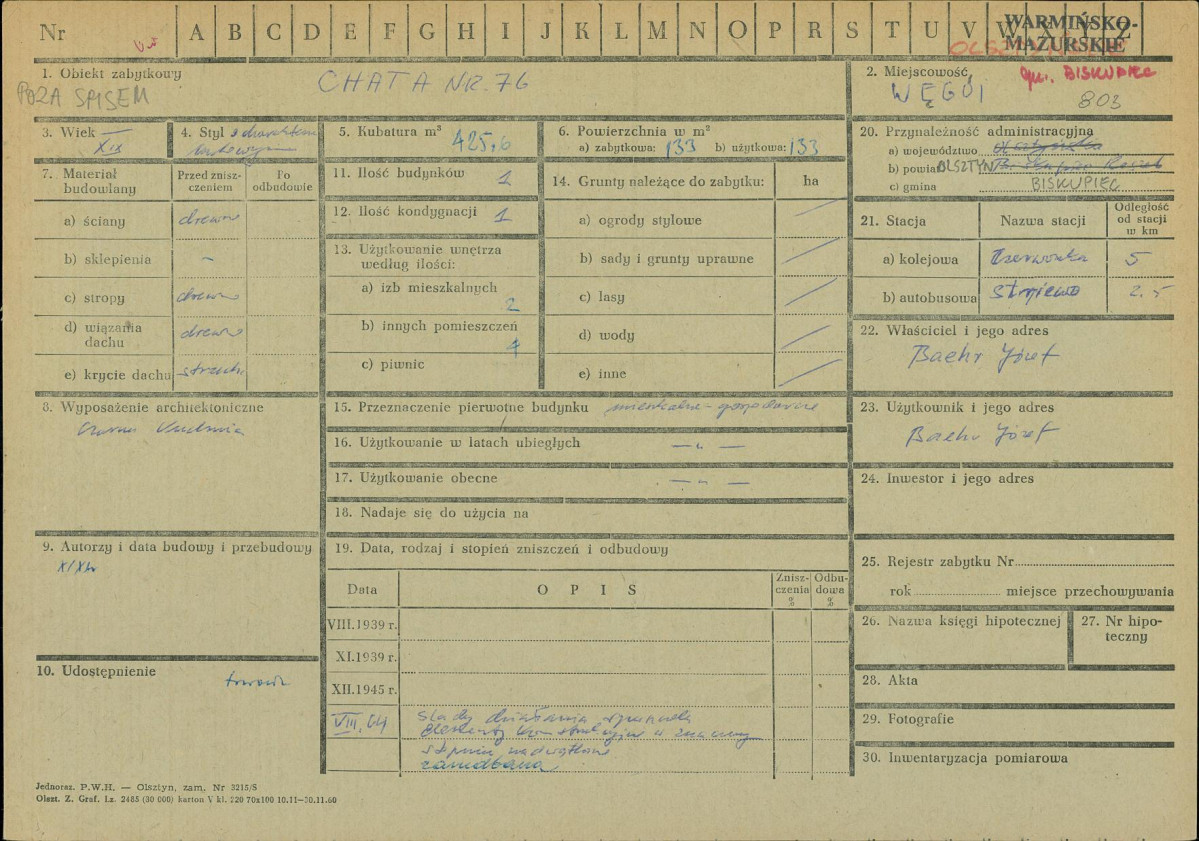 Nr A B C D E F G H I J K L M N O P R S T U V W Y Z
WARMIŃSKO-
MAZURSKIE
1. Obiekt zabytkowy
CHATA NR. 76
POZA SPISEM
2. Miejscowość
gm. BISKUPIEC
WĘGÓJ
803
3. Wiek XIX
4. Styl
5. Kubatura m³ 425,6
6. Powierzchnia w m²
a) zabytkowa: 133 b) użytkowa: 133
7. Materiał budowlany
Przed zniszczeniem
Po odbudowie
a) ściany drewno
b) sklepienia –
c) stropy drewno
d) wiązania dachu drewno
e) krycie dachu
8. Wyposażenie architektoniczne
czarna kuchnia
9. Autorzy i data budowy i przebudowy
XIX w
10. Udostępnienie
11. Ilość budynków 1
12. Ilość kondygnacji 1
13. Użytkowanie wnętrza
według ilości:
a) izb mieszkalnych
2
b) innych pomieszczeń
4
c) piwnic
14. Grunty należące do zabytku: ha
a) ogrody stylowe
b) sady i grunty uprawne
c) lasy
d) wody
e) inne
15. Przeznaczenie pierwotne budynku mieszkalno-gospodarcze
16. Użytkowanie w latach ubiegłych — „ —
17. Użytkowanie obecne — „ —
18. Nadaje się do użycia na
19. Data, rodzaj i stopień zniszczeń i odbudowy
Data OPIS Zniszczenia % Odbudowa %
VIII.1939 r.
XI.1939 r.
XII.1945 r.
VIII.64 ślady działania
elementy konstrukcyjne w znacznym
stopniu nadwątlone
zaniedbana
20. Przynależność administracyjna
a) województwo
b) powiat OLSZTYN
c) gmina BISKUPIEC
21. Stacja Nazwa stacji Odległość od stacji w km
a) kolejowa Czerwonka 5
b) autobusowa 2.5
22. Właściciel i jego adres
Baehr Józef
23. Użytkownik i jego adres
Baehr Józef
24. Inwestor i jego adres
25. Rejestr zabytku Nr
rok miejsce przechowywania
26. Nazwa księgi hipotecznej
27. Nr hipoteczny
28. Akta
29. Fotografie
30. Inwentaryzacja pomiarowa
Jednoraz. P.W.H. — Olsztyn, zam. Nr 3215/S
Olszt. Z. Graf. Lz. 2485 (30 000) karton V kl. 220 70x100 10.11—30.11.60